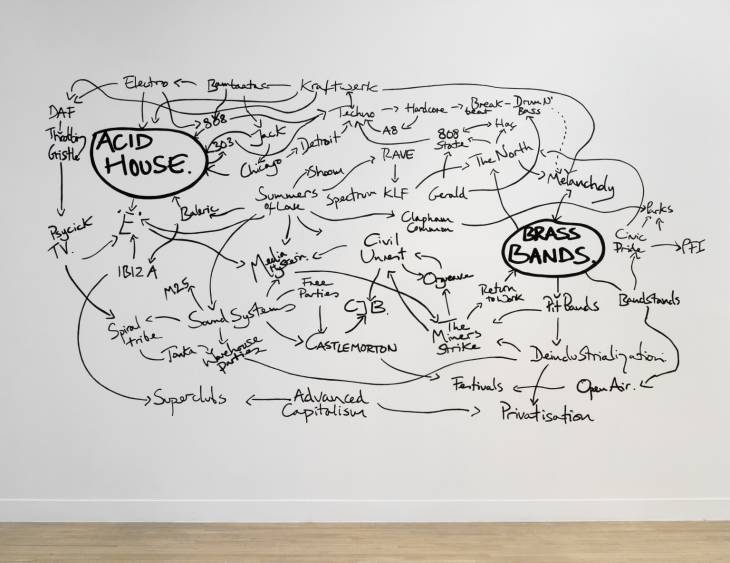 Electro
Bambaataa
Kraftwerk
DAF
808
Techno
Hardcore
Break-
beat
Drum N'
Bass
Throbbing
Gristle
ACID
HOUSE.
303
Jack
Detroit
A8
808
State
Haç
Chicago
Shoom
RAVE
The North
Melancholy
Summers
of Love
Spectrum
KLF
Gerald
Psycick
TV.
'E'
Balearic
Clapham
Common
Parks
BRASS
BANDS.
Civic
Pride
PFI
IBIZA
Media
Hysteria
Civil
Unrest
Orgreave
M25
Free
Parties
CJB.
Return
to Work
Pit Bands
Bandstands
Spiral
tribe
Sound Systems
The
Miners
Strike
Tonka
Warehouse
parties
CASTLEMORTON
Deindustrialization
Festivals
Open Air.
Superclubs
Advanced
Capitalism
Privatisation